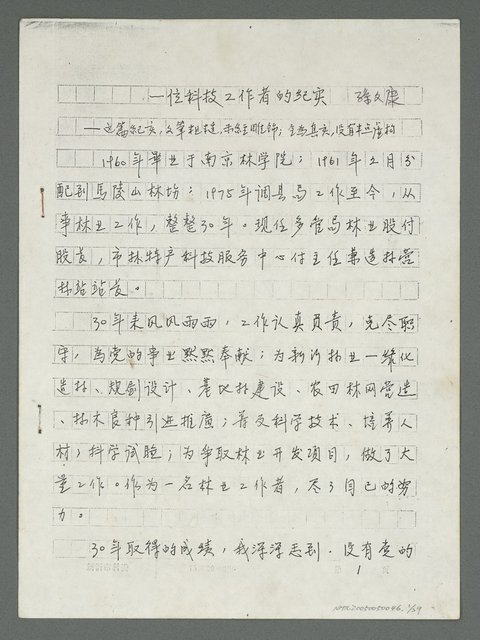 一位科技工作者的纪实 孫文康
一这篇纪实，文笔粗糙，未经雕饰；全为真实，没有半点虚构
1960年畢业于南京林学院；1961年2月分
配到馬陵山林场；1975年调县局工作至今，从
事林业工作，整整30年。现任多管局林业股付
股长，市林特产科技服务中心付主任兼造林营
林站站长。
30年来风风雨雨，工作认真負责，克尽职
守，為党的事业默默奉献；为新沂林业一绿化
造林、规划设计、基地林建设、农田林网营造
、林木良种引进推廣；普及科学技术、培养人
材；科学试验；为争取林业开发项目，做了大
量工作。作为一名林业工作者，尽了自己的努
力。
30年取得的成绩，我深深悉到．没有党的
1
NMTL20050050046. 1/29